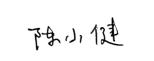 陈小健